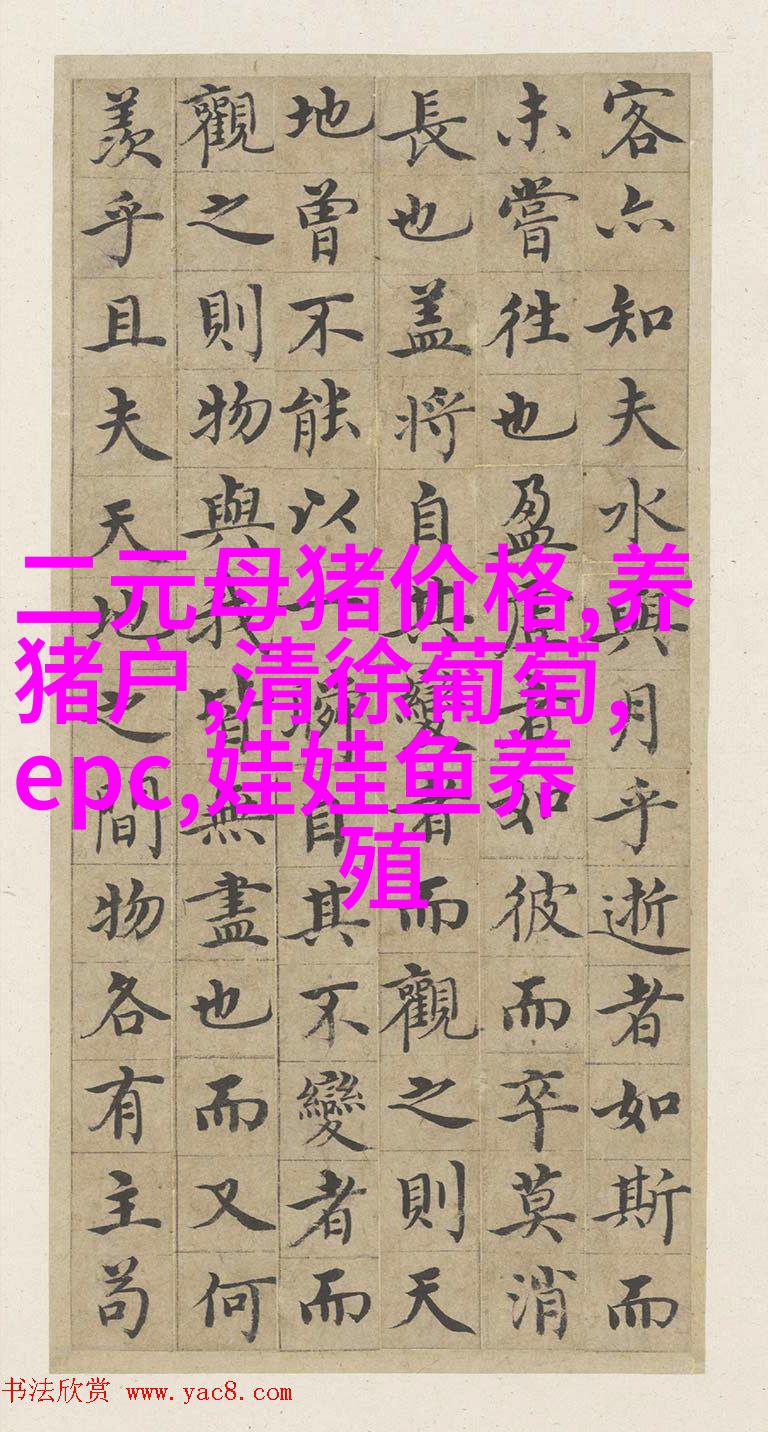 客亦知夫水與月乎逝者如斯而
未嘗往也盈虛者如彼而卒莫消
長也盖将自其變者而觀之則天
地曾不能以一瞬自其不變者而
觀之則物與我皆無盡也而又何
羨乎且夫天地之間物各有主苟
二元母猪价格,养
猪户,清徐葡萄,
epc,娃娃鱼养
殖
书法欣赏 www.yac8.com